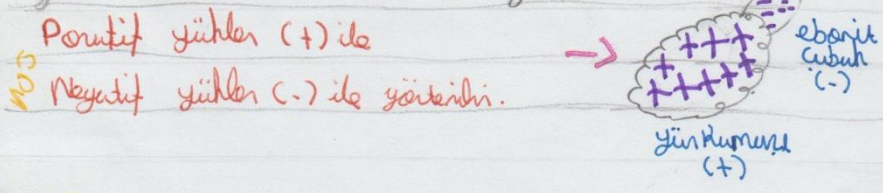 NOT
Pozitif yükler (+) ile
Negatif yükler (-) ile gösterilir.
ebonit
çubuk
(-)
yün kumaş
(+)